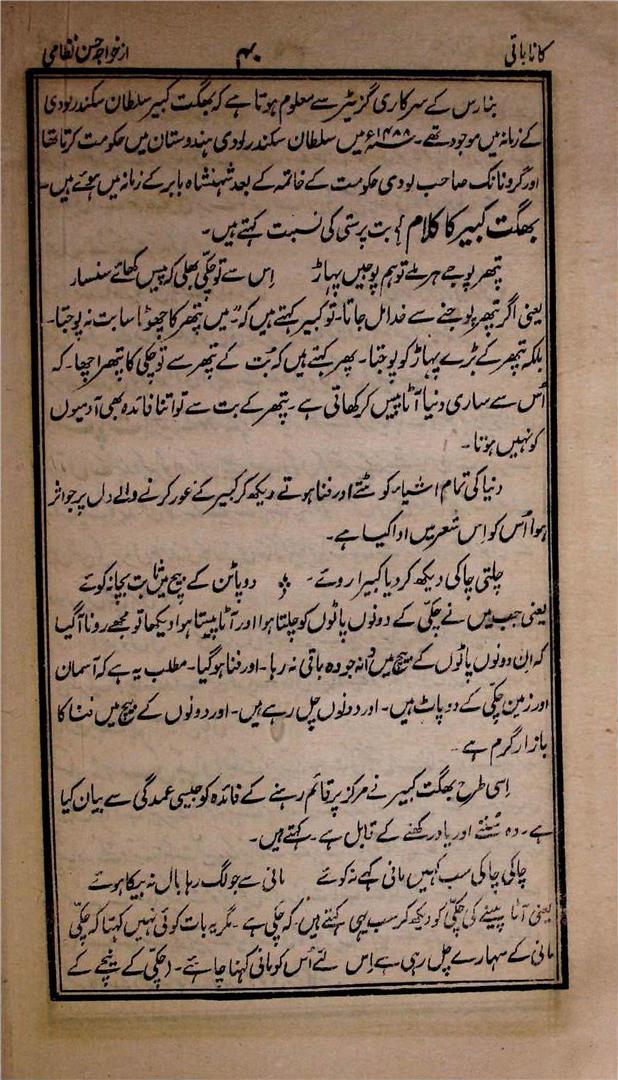 کانا باتی ۴۰ از خواجہ حسن نظامی
بنارس کے سرکاری گزیٹر سے معلوم ہوتا ہے کہ بھگت کبیر سلطان سکندر لودی
کے زمانہ میں موجود تھے۔ ۱۴۸۸ء میں سلطان سکندر لودی ہندوستان میں حکومت کرتا تھا
اور گرونانک صاحب لودی حکومت کے خاتمہ کے بعد شہنشاہ بابر کے زمانہ میں ہوئے ہیں۔
بھگت کبیر کا کلام بت پرستی کی نسبت کہتے ہیں۔
پتھر پوجے ہر ملے تو ہم پوجیں پہاڑ اِس سے تو چکّی بھلی کہ پیس کھائے سنسار
یعنی اگر پتھر پوجنے سے خدا مل جاتا۔ تو کبیر کہتے ہیں کہ میں پتھر کا چھوٹا سا بت نہ پوجتا۔
بلکہ پتھر کے بڑے پہاڑ کو پوجتا۔ پھر کہتے ہیں کہ بُت کے پتھر سے تو چکی کا پتھر اچھا۔ کہ
اُس سے ساری دنیا آٹا پیس کر کھاتی ہے۔ پتھر کے بت سے تو اتنا فائدہ بھی آدمیوں
کو نہیں ہوتا۔
دنیا کی تمام اشیاء کو مٹتے اور فنا ہوتے دیکھ کر کبیر کے غور کرنے والے دل پر جو اثر
ہوا اُس کو اِس شعر میں ادا کیا ہے۔
چلتی چاکی دیکھ کر دیا کبیرا روئے۔ دو پاٹن کے بیچ میں ثابت بچا نہ کوئے
یعنی جب میں نے چکّی کے دونوں پاٹوں کو چلتا ہوا اور آٹا پیستا ہوا دیکھا تو مجھے رونا آگیا
کہ اِن دونوں پاٹوں کے بیچ میں دانہ جو دہ باقی نہ رہا۔ اور فنا ہوگیا۔ مطلب یہ ہے کہ آسمان
اور زمین چکّی کے دو پاٹ ہیں۔ اور دونوں چل رہے ہیں۔ اور دونوں کے بیچ میں فنا کا
بازار گرم ہے۔
اِسی طرح بھگت کبیر نے مرکز پر قائم رہنے کے فائدہ کو جیسی عمدگی سے بیان کیا
ہے۔ وہ سُننے اور یاد رکھنے کے قابل ہے۔ کہتے ہیں۔
چاکی چاکی سب کہیں مانی کہے نہ کوئے مانی سے جو لگ رہا بال نہ بیکا ہوئے
یعنی آٹا پیسنے کی چکّی کو دیکھ کر سب یہی کہتے ہیں۔ کہ چکّی ہے۔ مگر یہ بات کوئی نہیں کہتا کہ چکّی
مانی کے سہارے چل رہی ہے اِس لئے اُس کو مانی کہنا چاہئے۔ (چکّی کے نیچے کے